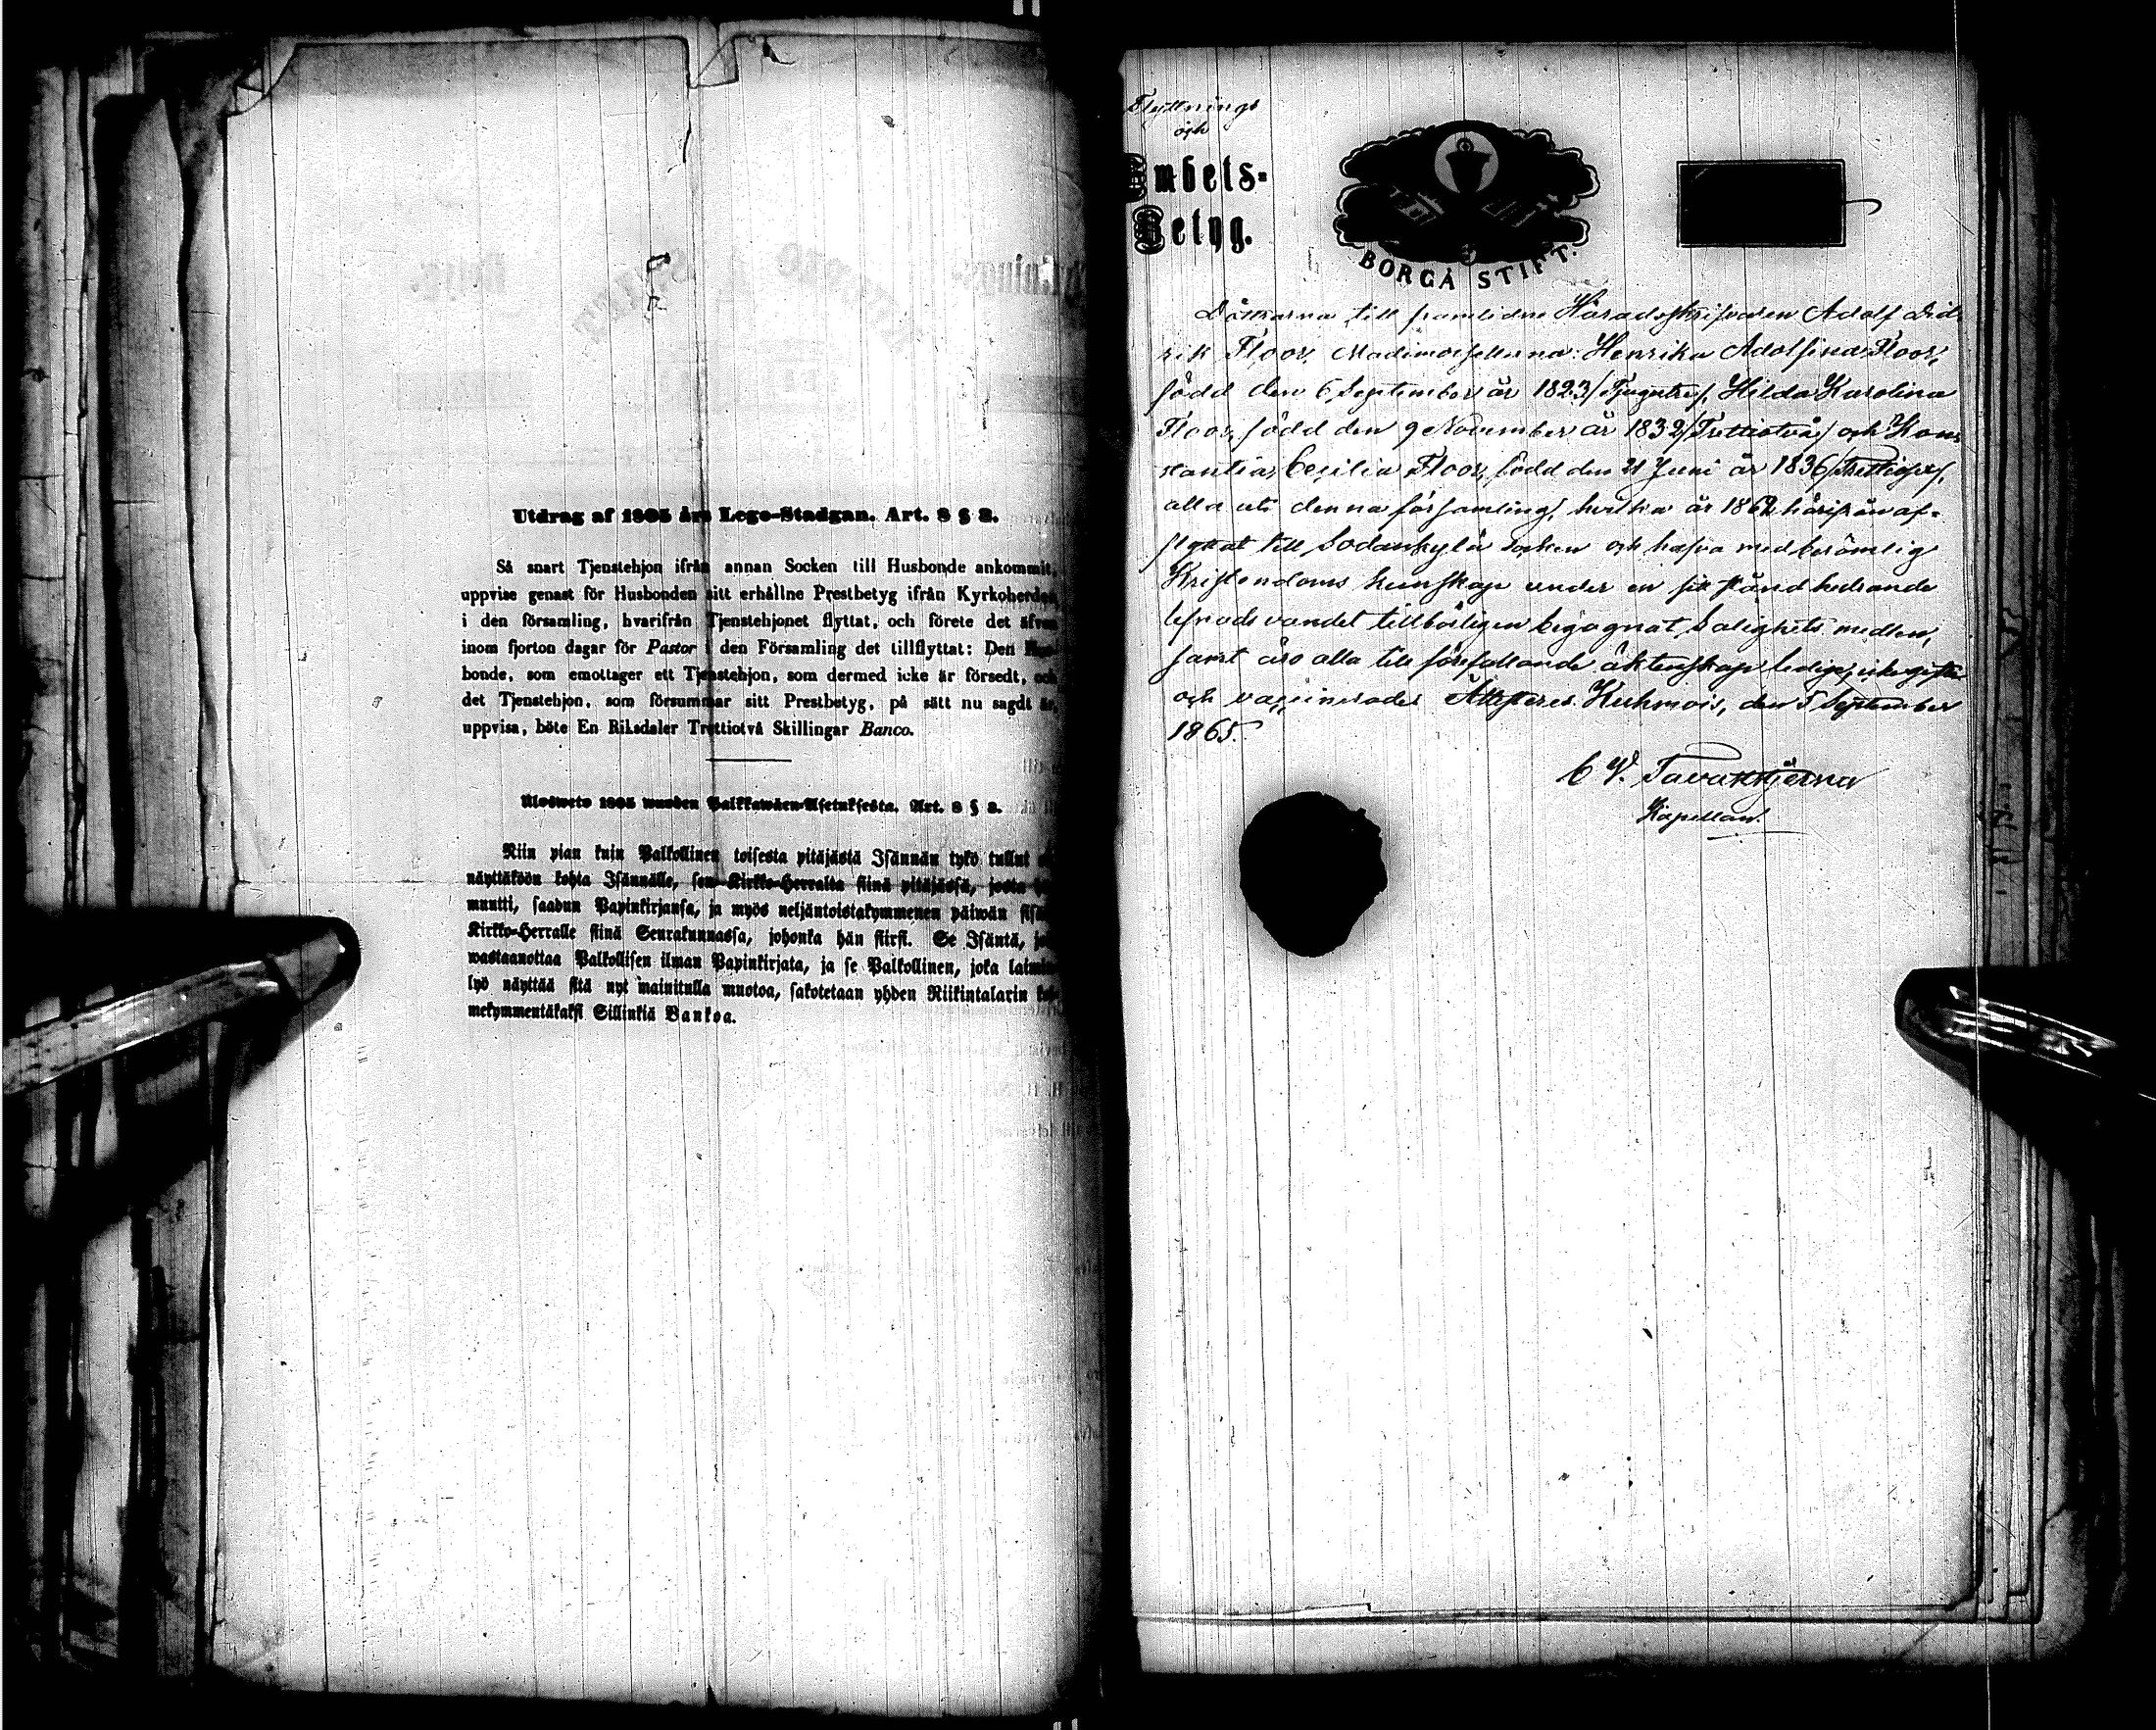 Utdrag af 1805 års Lego-Stadgan. Art. 8 § 2.
Så snart Tjenstehjon ifrån annan Socken till Husbonde ankommit,
uppvise genast för Husbonden sitt erhållne Prestbetyg ifrån Kyrkoherden
i den församling, hvarifrån Tjenstehjonet flyttat, och förete det äfven
inom fjorton dagar för Pastor i den Församling det tillflyttat: Den Hus-
bonde, som emottager ett Tjenstehjon, som dermed icke är försedt, och
det Tjenstehjon, som försummar sitt Prestbetyg, på sätt nu sagdt är,
uppvisa, böte En Riksdaler Trettiotvå Skillingar Banco.
Ulosweto 1805 wuoden Palkkawäen-Asetuksesta. Art. 8 § 2.
Niin pian kuin Palkollinen toisesta pitäjästä Isännän tykö tullut
näyttäköön kohta Isännälle, sen Kirkko-Herralta siinä pitäjässä, josta
muutti, saadun Papinkirjansa, ja myös neljäntoistakymmenen päiwän
Kirkko-Herralle siinä Seurakunnassa, johonka hän siirsi. Se Isäntä,
wastaanottaa Palkollisen ilman Papinkirjata, ja se Palkollinen, joka
lyö näyttää sitä nyt mainitulla muotoa, sakotetaan yhden Riikintalarin
mekymmentäkaksi Sillinkiä Bankoa.
Flyttnings
och
Embets-
Betyg.
BORGÅ STIFT.
Döttrarna till framlidne Häradsskrifvaren Adolf Did-
rik Floor, Mademoisellerna: Henrika Adolfina Floor,
född den 6 September år 1823 /Tjugutre/, Hilda Karolina
Floor, född den 9 November år 1832 /Trettiotvå/ och Kon-
stantia Cecilia Floor, född den 21 Juni år 1836 /Trettiosex/,
alla uti denna församling, hvilka år 1862 härifrån af-
flyttat till Sodankylä Socken och hafva med berömlig
Kristendoms kunskap under en sitt stånd hedrande
lefnadsvandel tillbörligen begagnat Salighets medlen,
samt äro alla till förefallande äktenskap lediga,
och vaccinerade. Attesteres. Kuhmois, den 5 September
1865.
C V. Tavaststjerna
Kapellan.